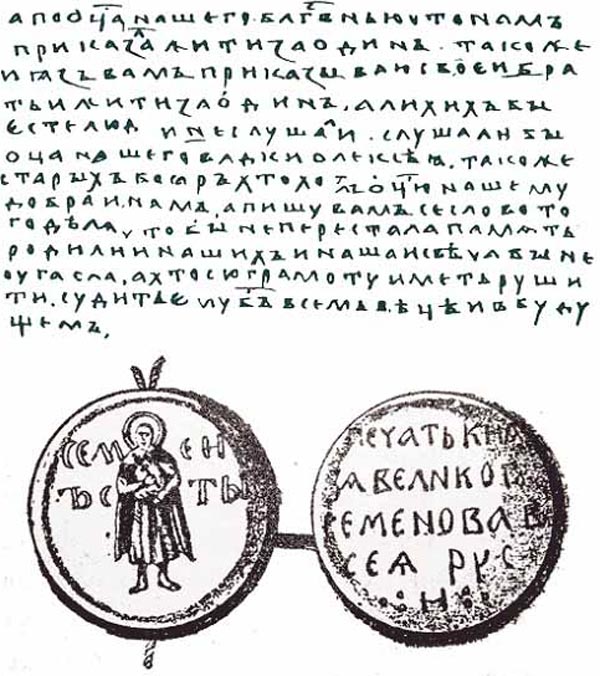 а по ѡц҃а нашего бл҃гв҃нью что намъ
приказа жити за одинъ. такоже
и ꙗзъ вамъ приказываю своеи бра
тьи жити за одинъ, а лихихъ бы
есте люд и не слушали. слушали бы
ѡц҃а нашего влдки олексѣꙗ. такоже
старыхъ боꙗръ хто хо ѡц҃ю нашему
добра и намъ, а пишу вамъ се слово то
го дѣлꙗ, что бы не перестала памѧть
родилии нашихъ и наша и свѣча бы не
оугасла, а хто сю грамоту иметь руши
ти, судить ѥму б҃ъ в семь в вѣцѣ и в буду
щемь,
семенъ
ъ стыи
печать кнѧ
зѧ великог
семенова в
сеѧ рус
и